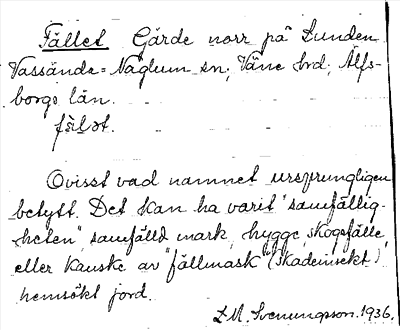 Fället Gärde norr på Lunden
Vassände-Naglum sn, Väne hrd, Älfs-
borgs län.
fäl̲ət.
Ovisst vad namnet ursprungligen
betytt. Det kan ha varit "samfällig-
heten", samfälld mark, hygge, skogsfälle,
eller kanske av "fällmask" (skadeinsekt)
hemsökt jord.
D. M. Svenungsson. 1936.